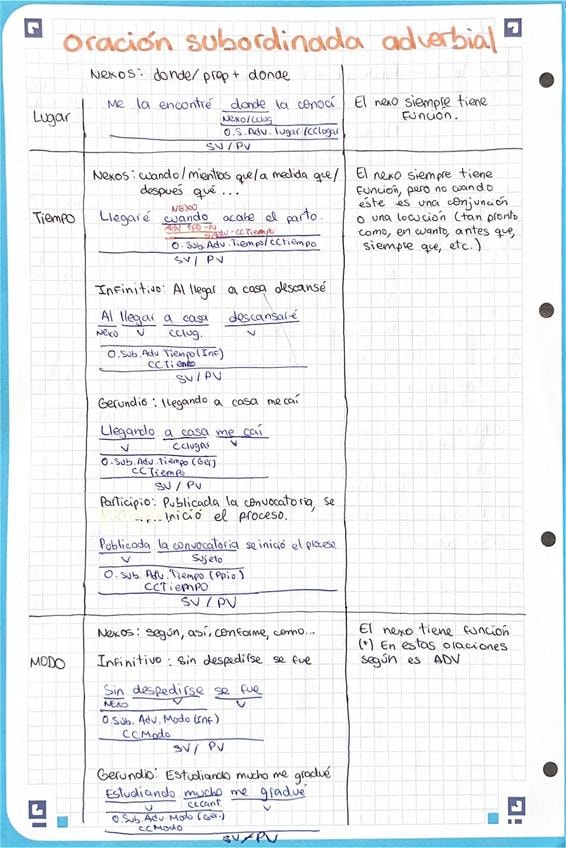 oración subordinada adverbial
Nexos: donde/prep + donde
Lugar
Me la encontré donde la conocí
Nexo/CClug
O.S. Adv. lugar/CClugar
SV/PV
El nexo siempre tiene
función.
Tiempo
Nexos: cuando/mientras que/a medida que/
después qué ...
NEXO
Llegaré cuando acabe el parto.
S/ADV-CCTiempo
O. Sub. Adv. Tiempo/CCtiempo
SV/PV
El nexo siempre tiene
función, pero no cuando
éste es una conjunción
o una locución (tan pronto
como, en cuanto, antes que,
siempre que, etc.)
Infinitivo: Al llegar a casa descansé
Al llegar a casa descansaré
Nexo V CClug. V
O. Sub. Adv. Tiempo (Inf)
CCTiempo
SV/PV
Gerundio: llegando a casa me caí
Llegando a casa me caí
V CClugar V
O. Sub. Adv. Tiempo (Ger)
CCTiempo
SV/PV
Participio: Publicada la convocatoria, se
inició el proceso.
Publicada la convocatoria se inició el proceso
V Sujeto
O. Sub. Adv. Tiempo (Ppio)
CCTiempo
SV/PV
MODO
Nexos: según, así, conforme, como...
Infinitivo: Sin despedirse se fue
Sin despedirse se fue
Nexo V V
O. Sub. Adv. Modo (Inf)
CCModo
SV/PV
El nexo tiene función
(*) En estas oraciones
según es ADV
Gerundio: Estudiando mucho me gradué
Estudiando mucho me gradué
V CCCant. V
O. Sub. Adv Modo (Ger.)
CCModo
SV/PV